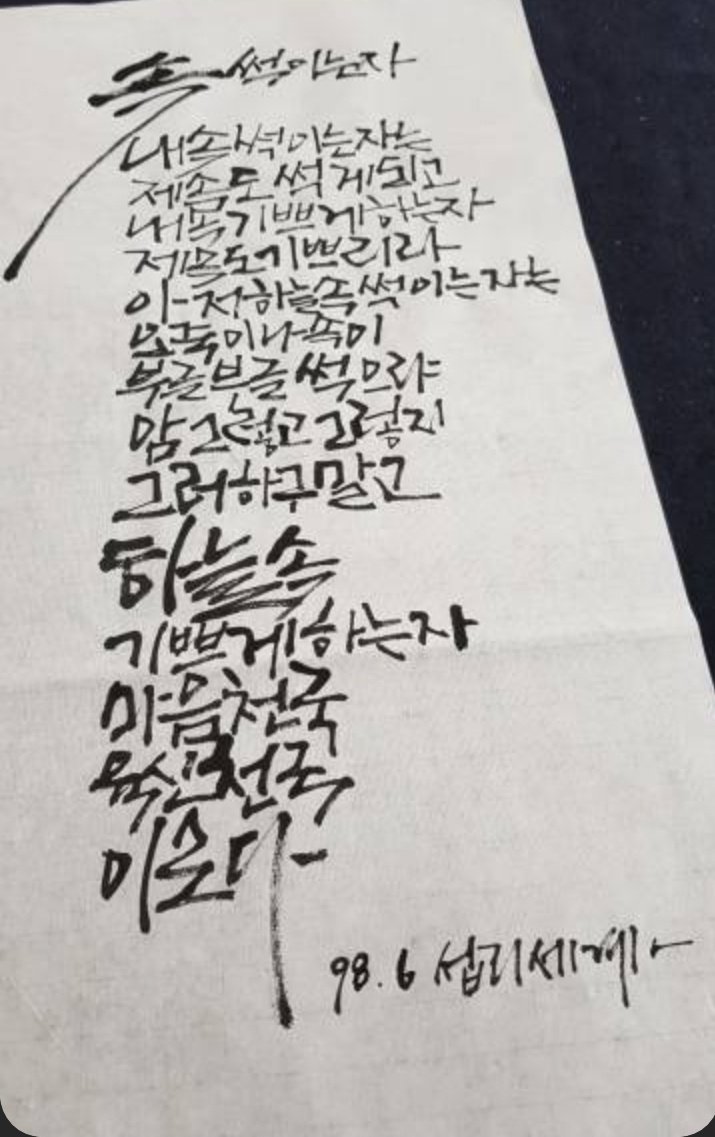 속 썩이는자
내속썩이는자는
제속도 썩게되고
내속기쁘게하는자
제속도기쁘리라
아-저하늘속썩이는자는
육이나
부글부글 썩으랴
암 그렇고 그렇지
그러하구말고
하늘속
기쁘게하는자
마음천국
육신천국
이로다-
98.6 섭리세계